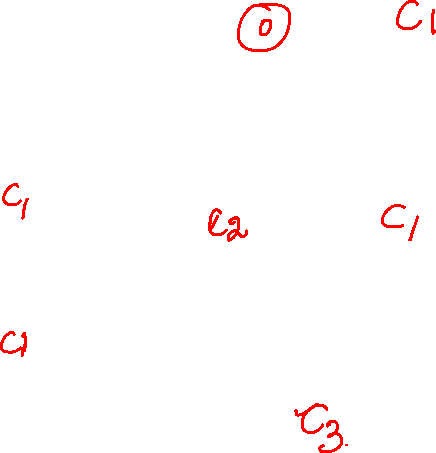 0 C1
C1 C2 C1
C1
C3.